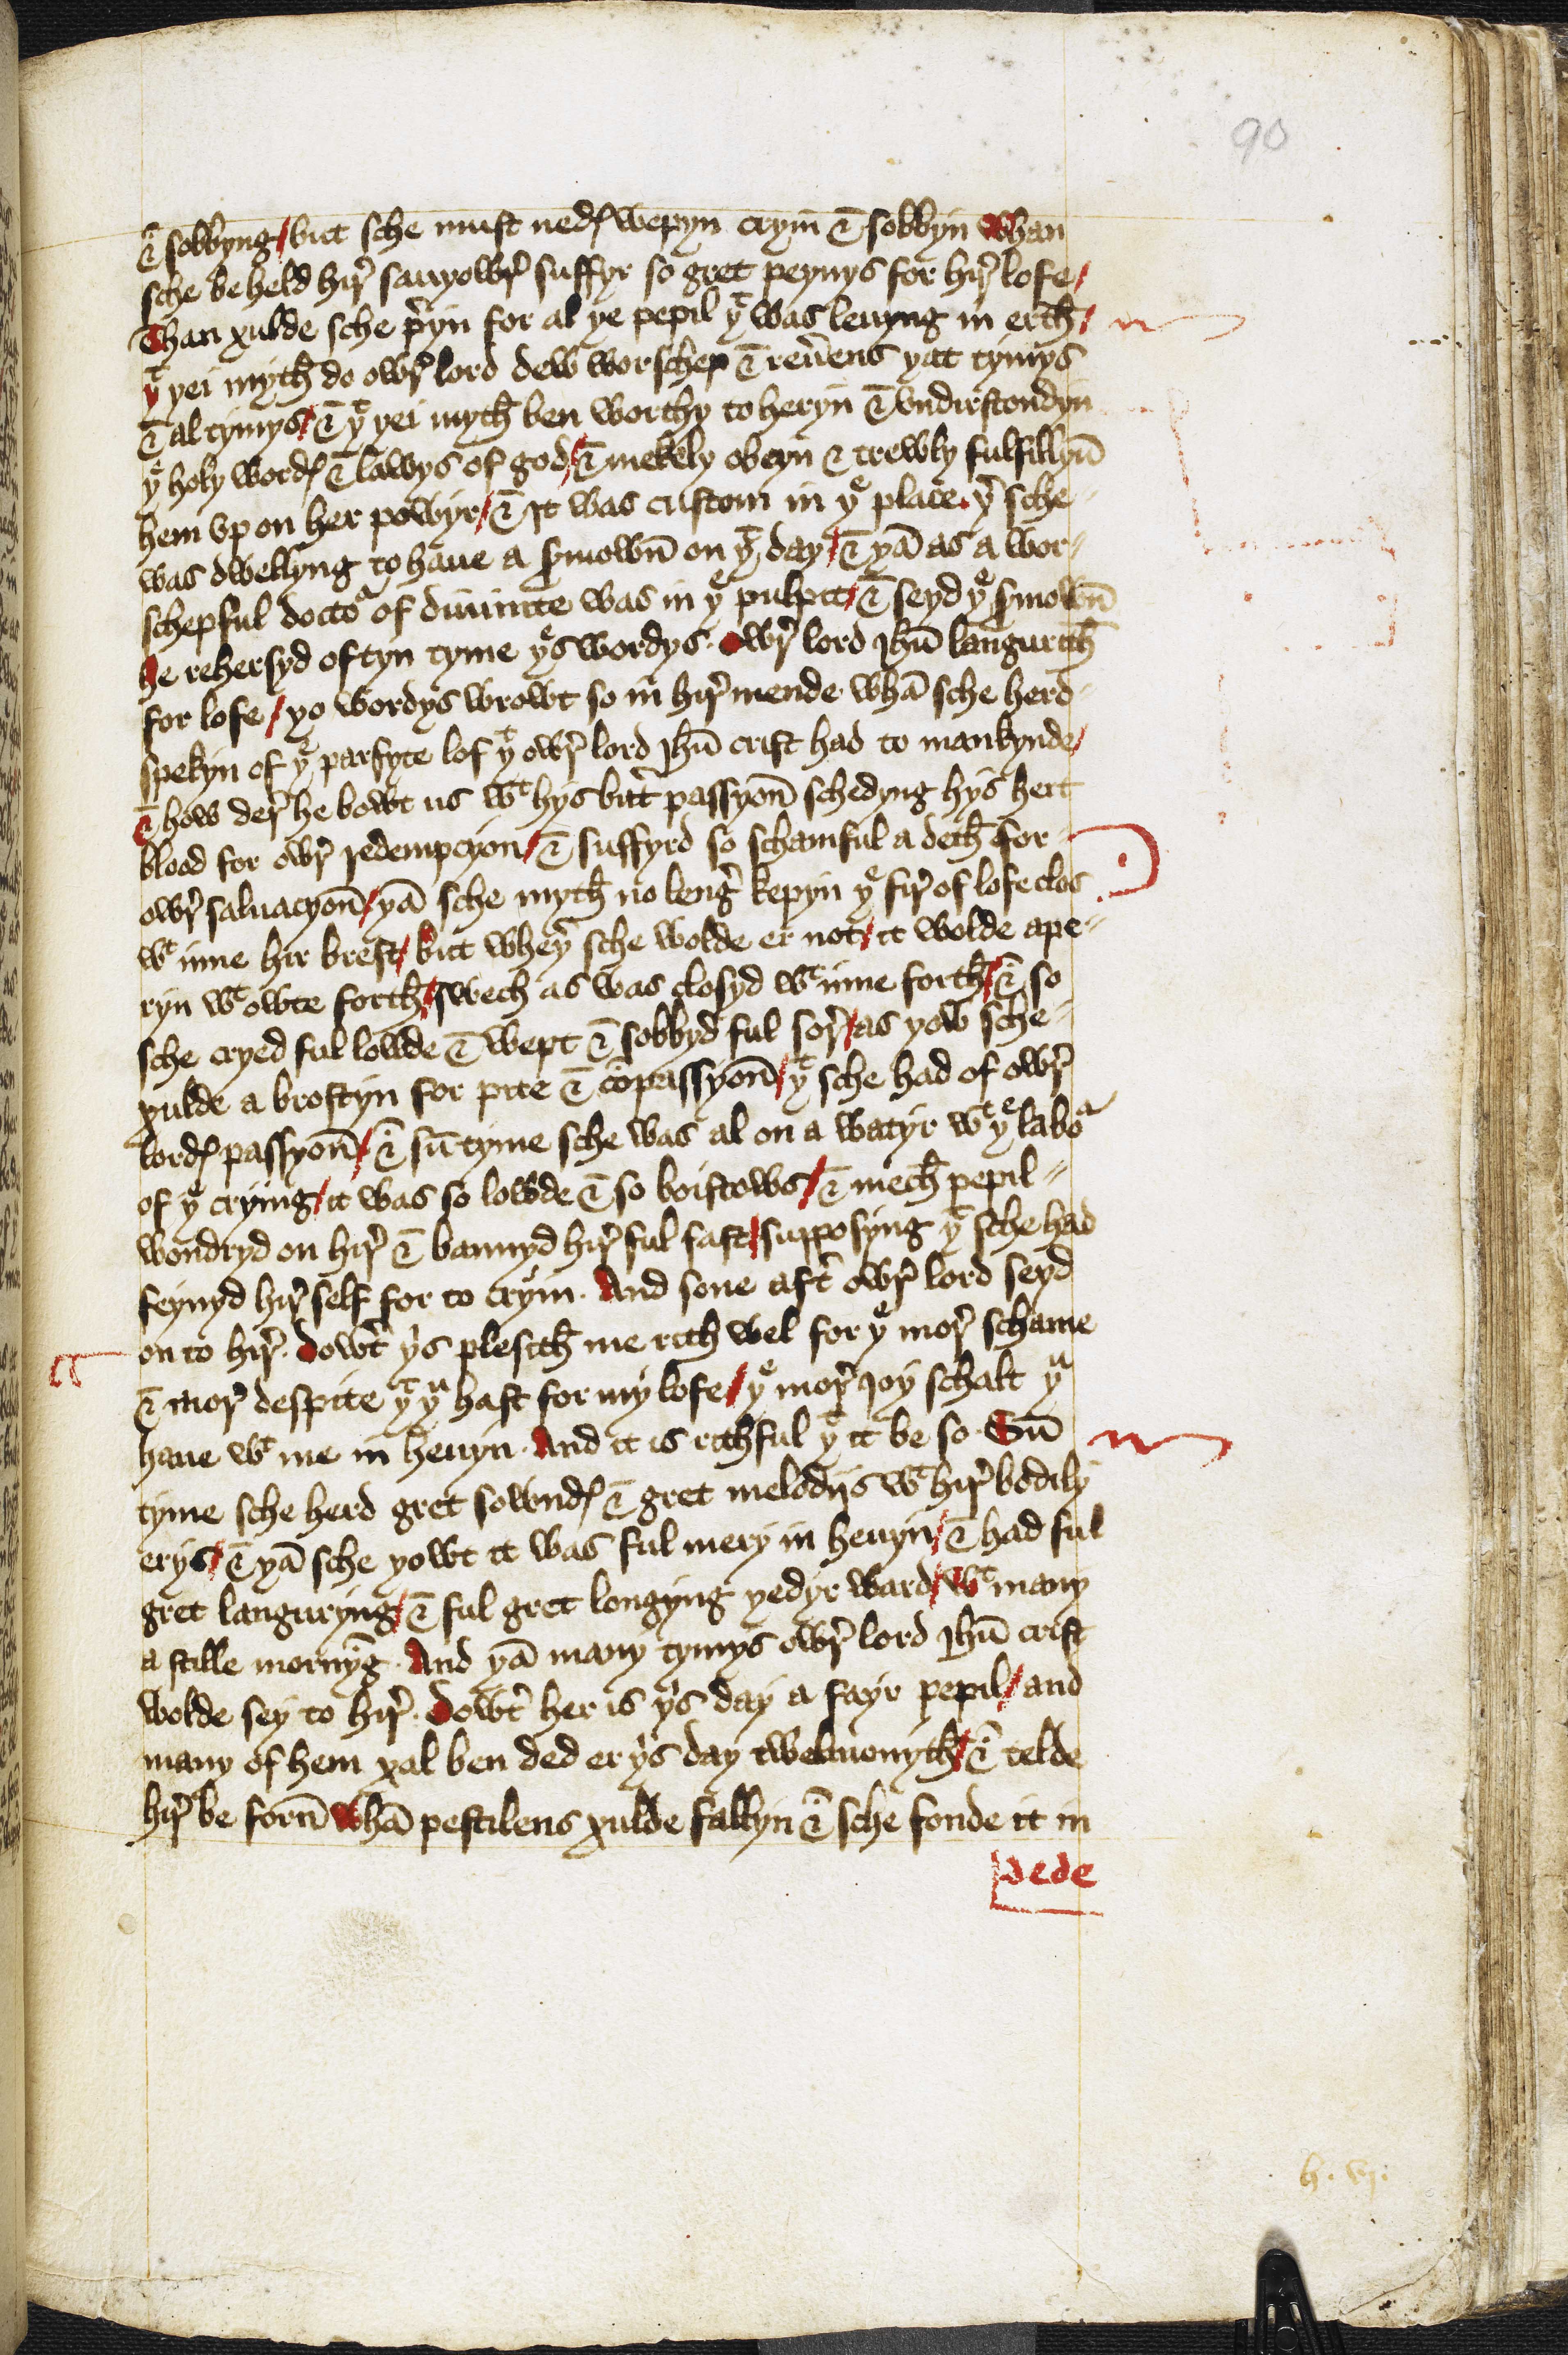 90
⁊ sobbyng / but sche must nedꝭ wepyn cryin̄ ⁊ sobbyn whan
sche beheld hir̛ sauyowr̛ suffyr so gret peynys for hir̛ lofe /
Than xulde sche p̛yin for al ye pepil yᵗ was leuyng in erth̄ /
yᵗ yei myth̄ do owr̛ lord dew worschep ⁊ reưens yat tymys
⁊ al tymys / ⁊ yᵗ yei myth̄ ben worthy to heryn ⁊ vndirstondyn
yᵉ holy wordꝭ ⁊ lawys of god / ⁊ mekely obeyn ⁊ trewly fulfillyn̄
hem vp on her powyr / ⁊ It was custom in yᵉ place . y̛ sche
was dwellyng to haue a s̛mown̄ on yᵗ day / ⁊ yā as a wor-
schepful doctoʳ of diuinite was in yᵉ pulpit / ⁊ seyd yᵉ s̛mown̄
he rehersyd oftyn tyme yᵉs wordys . Owr̛ lord Jhū langurith̄
for lofe / yo wordys wrowt so in hir̛ mende whā sche herd
spekyn of yᵉ parfyte lof yᵗ owr̛ lord Jhū crist had to mankynde /
⁊ how der̛ he bowt us wᵗ hys bitt̛ passyon̄ schedyng hys hert
blood for owr̛ redempcyon / ⁊ suffyrd so schamful a deth̄ for
owr̛ saluacyon̄ / yā sche myth̄ no leng̛ kepyn yᵉ fir̛ of lofe clos
wᵗ inne hir brest / but whey̛ sche wolde er not / it wolde ape-
ryn wᵗ owte forth̄ / swech as was closyd wᵗ inne forth̄ / ⁊ so
sche cryed ful lowde ⁊ wept ⁊ sobbyd ful sor̛ / as yow sche
xulde a brostyn for pite ⁊ cōpassyon̄ / yᵗ sche had of owr̛
lordꝭ passyon̄ / ⁊ sū tyme sche was al on a watyr wᵗ yᵉ laboʳ
of yᵉ crying / it was so lowde ⁊ so boistows / ⁊ mech̄ pepil
wondryd on hir̛ ⁊ bannyd hir̛ ful fast / supposyng yᵗ sche had
feynyd hir̛ self for to cryin . And sone aft̛ owr̛ lord seyd
on to hir̛ . Dowt̛ yⁱs plesith̄ me rith wel for yᵉ mor̛ schame
⁊ mor̛ despite yᵗ yᵘ hast for my lofe / yᵉ mor̛ joy schalt yᵘ
haue wᵗ me in heuyn . And it is rithful yᵗ it be so . Sū
tyme sche herd gret sowndꝭ ⁊ gret melodijs wᵗ hir̛ bodily
erys / ⁊ yā sche yowt it was ful mery in heuyn / ⁊ had ful
gret languryng / ⁊ ful gret longyng yedyr ward / wᵗ many
a stille mornȳg . And yā many tymys owr̛ lord Jhū crist
wolde sey to hir̛ . Dowt̛ her is yⁱs day a fayr pepil / and
many of hem xal ben ded er yⁱs day twelmonyth̄ / ⁊ telde
hir̛ be forn̄ whā pestilens xulde fallyn ⁊ sche fonde it in
dede
h . vj .